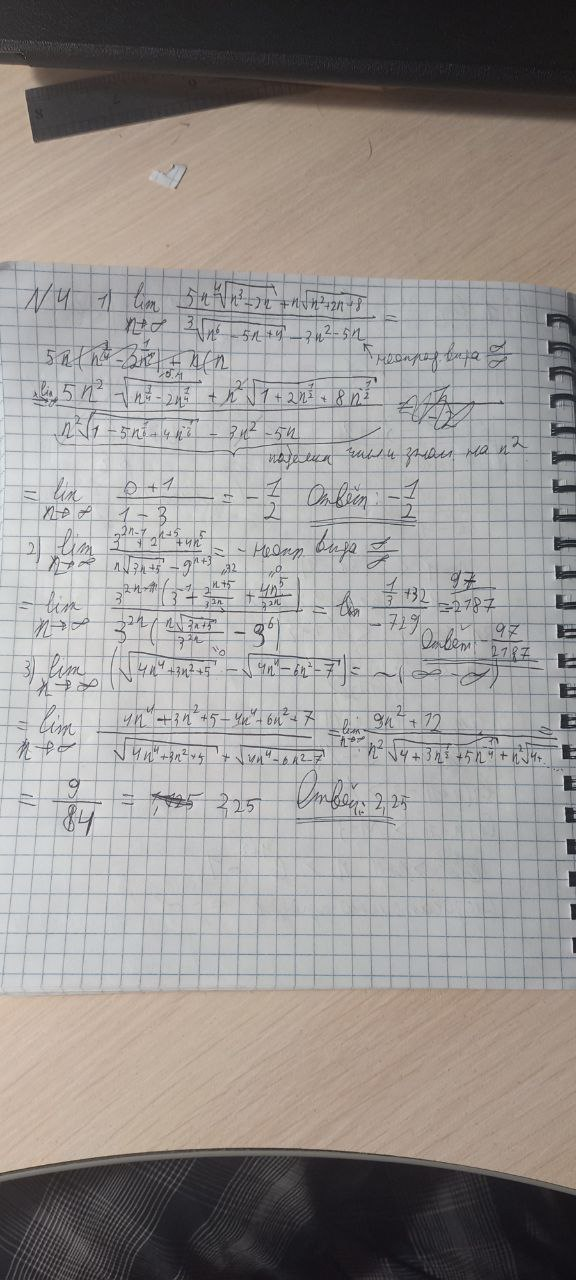 N4 1) lim n→∞ (5n ⁴√(n³-2n) + n√(n²+2n+8)) / (³√(n⁶-5n+4) - 3n²-5n) =
неопред вида ∞/∞
lim n→∞ (5n² √(n^(1/4)-2n^(7/4)) + n²√(1+2n^(1/2)+8n^(-1/2))) / (n²√(1-5n^(1/6)+4n^(-1/6)) - 3n²-5n) =
поделим числ и знам на n²
= lim n→∞ (0+1)/(1-3) = -1/2 Ответ: -1/2
2) lim n→∞ (3^(2n-1)+2^(n+5)+4n⁵) / (n√(3n+5) - 9^(n+3)) = - неоп вида ∞/∞
= lim n→∞ 3^(2n)(3^(-1)+2^(n+5)/3^(2n)+4n⁵/3^(2n)) / 3^(2n)(n√(3n+5)/3^(2n) - 3⁶) = lim (1/3+32)/(-729) = 97/-2187
Ответ: -97/2187
3) lim n→∞ (√(4n⁴+3n²+5) - √(4n⁴-6n²-7)) = ~(∞-∞)
= lim n→∞ (4n⁴+3n²+5-4n⁴+6n²+7) / (√(4n⁴+3n²+5)+√(4n⁴-6n²-7)) = lim n→∞ (9n²+12) / (n²√(4+3n^(1/2)+5n^(1/4))+n²√(4+... =
= 9/84 = 2,25 Ответ: 2,25